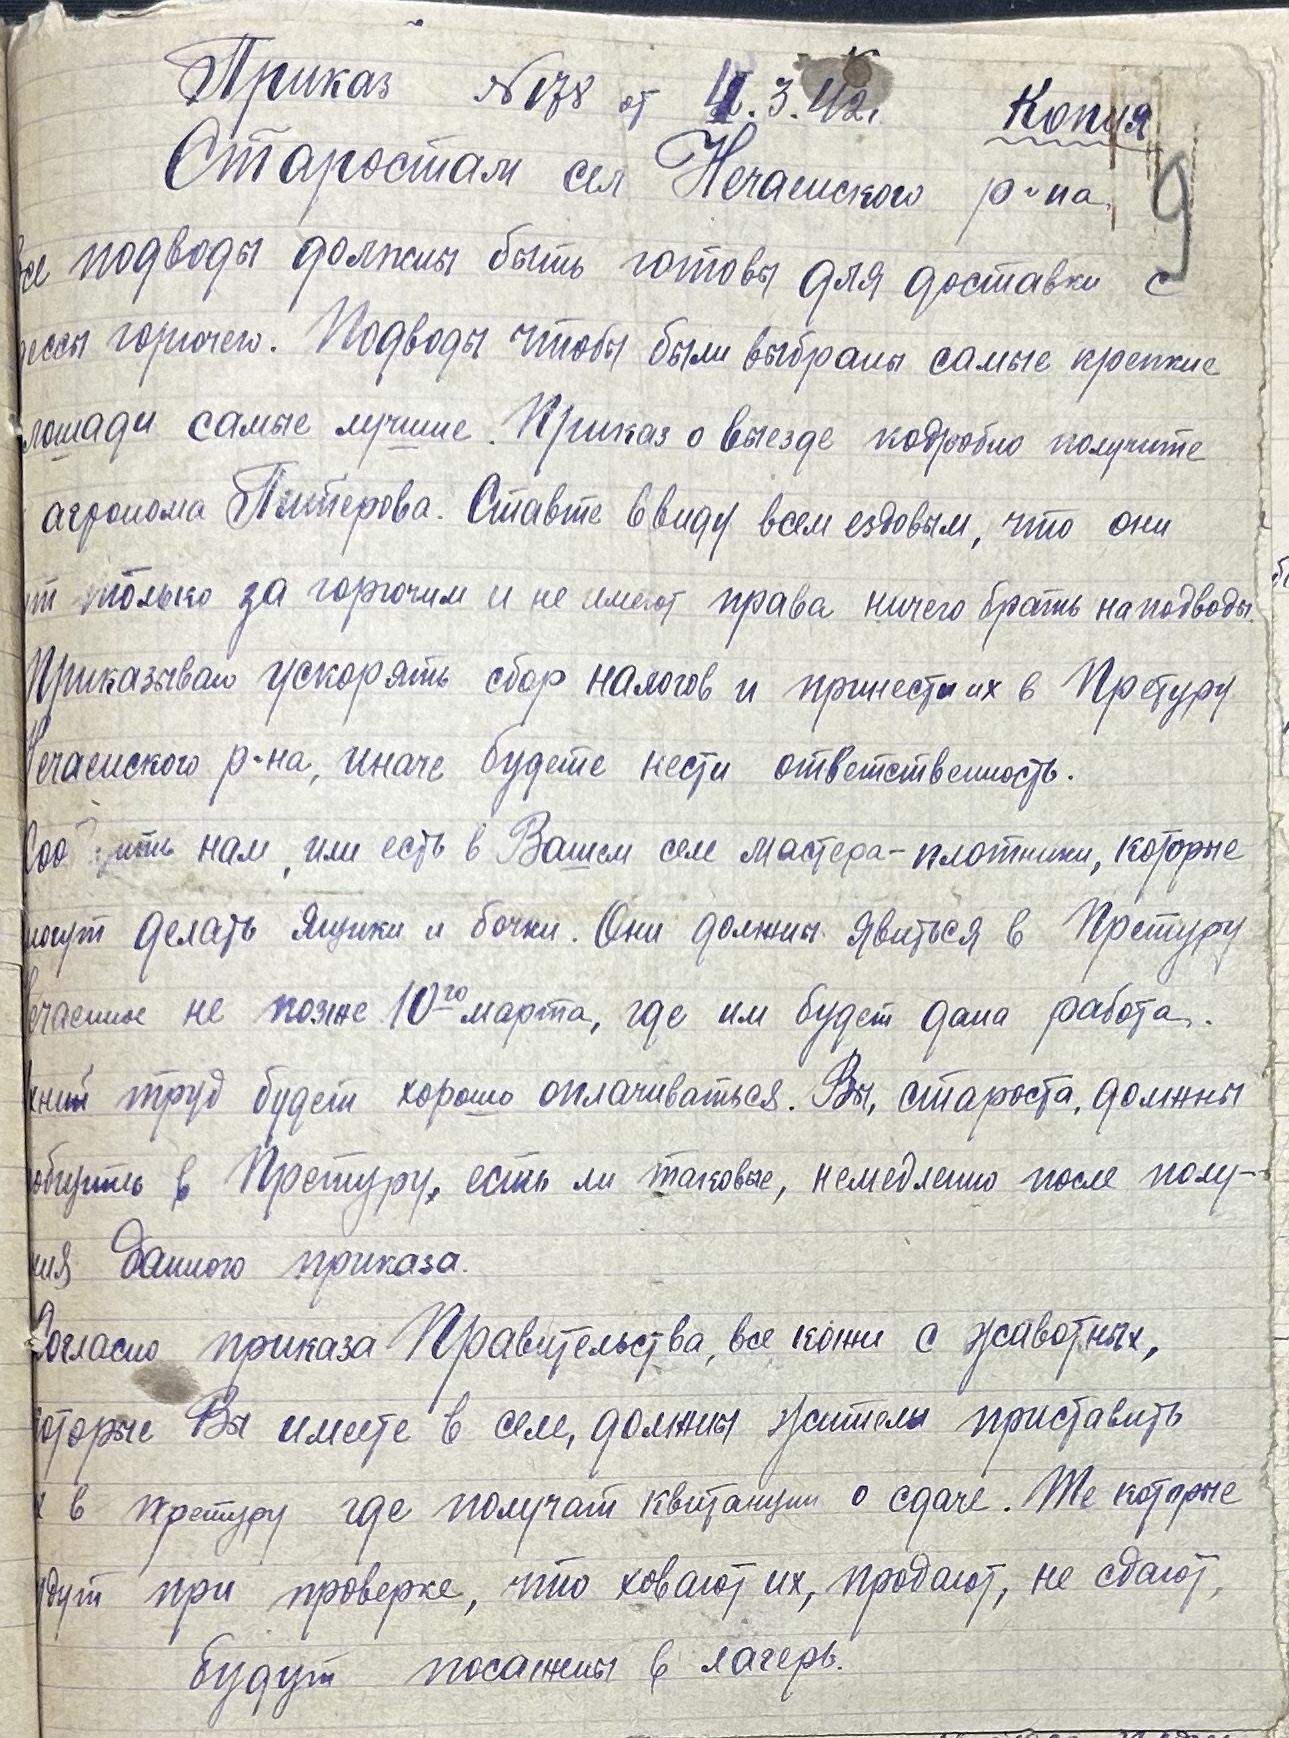 Приказ №178 от 4.3.42. Копия
9
Старостам сел Нечаенского р-на.
все подводы должны быть готовы для доставки с
дессы горючего. Подводы чтобы были выбраны самые крепкие
лошади самые лучшие. Приказ о выезде подробно получите
агронома Питерова. Ставте ввиду всем ездовым, что они
ут только за горючим и не имеют права ничего брать на подводы.
Приказываю ускорять сбор налогов и принести их в Претуру
Нечаенского р-на, иначе будете нести ответственность.
нам, или есть в Вашем селе мастера-плотники, которые
могут делать ящики и бочки. Они должны явиться в Претуру
ечаенное не позже 10го марта, где им будет дана работа.
хний труд будет хорошо оплачиваться. Вы, староста, должны
общить в Претуру, есть ли таковые, немедленно после полу-
ния данного приказа.
Согласно приказа Правительства, все кожи с жавотных,
которые Вы имеете в селе, должны жители приставить
х в претуру где получат квитанции о сдаче. Те которые
дут при проверке, что ховают их, продают, не сдают,
будут посажены в лагерь.